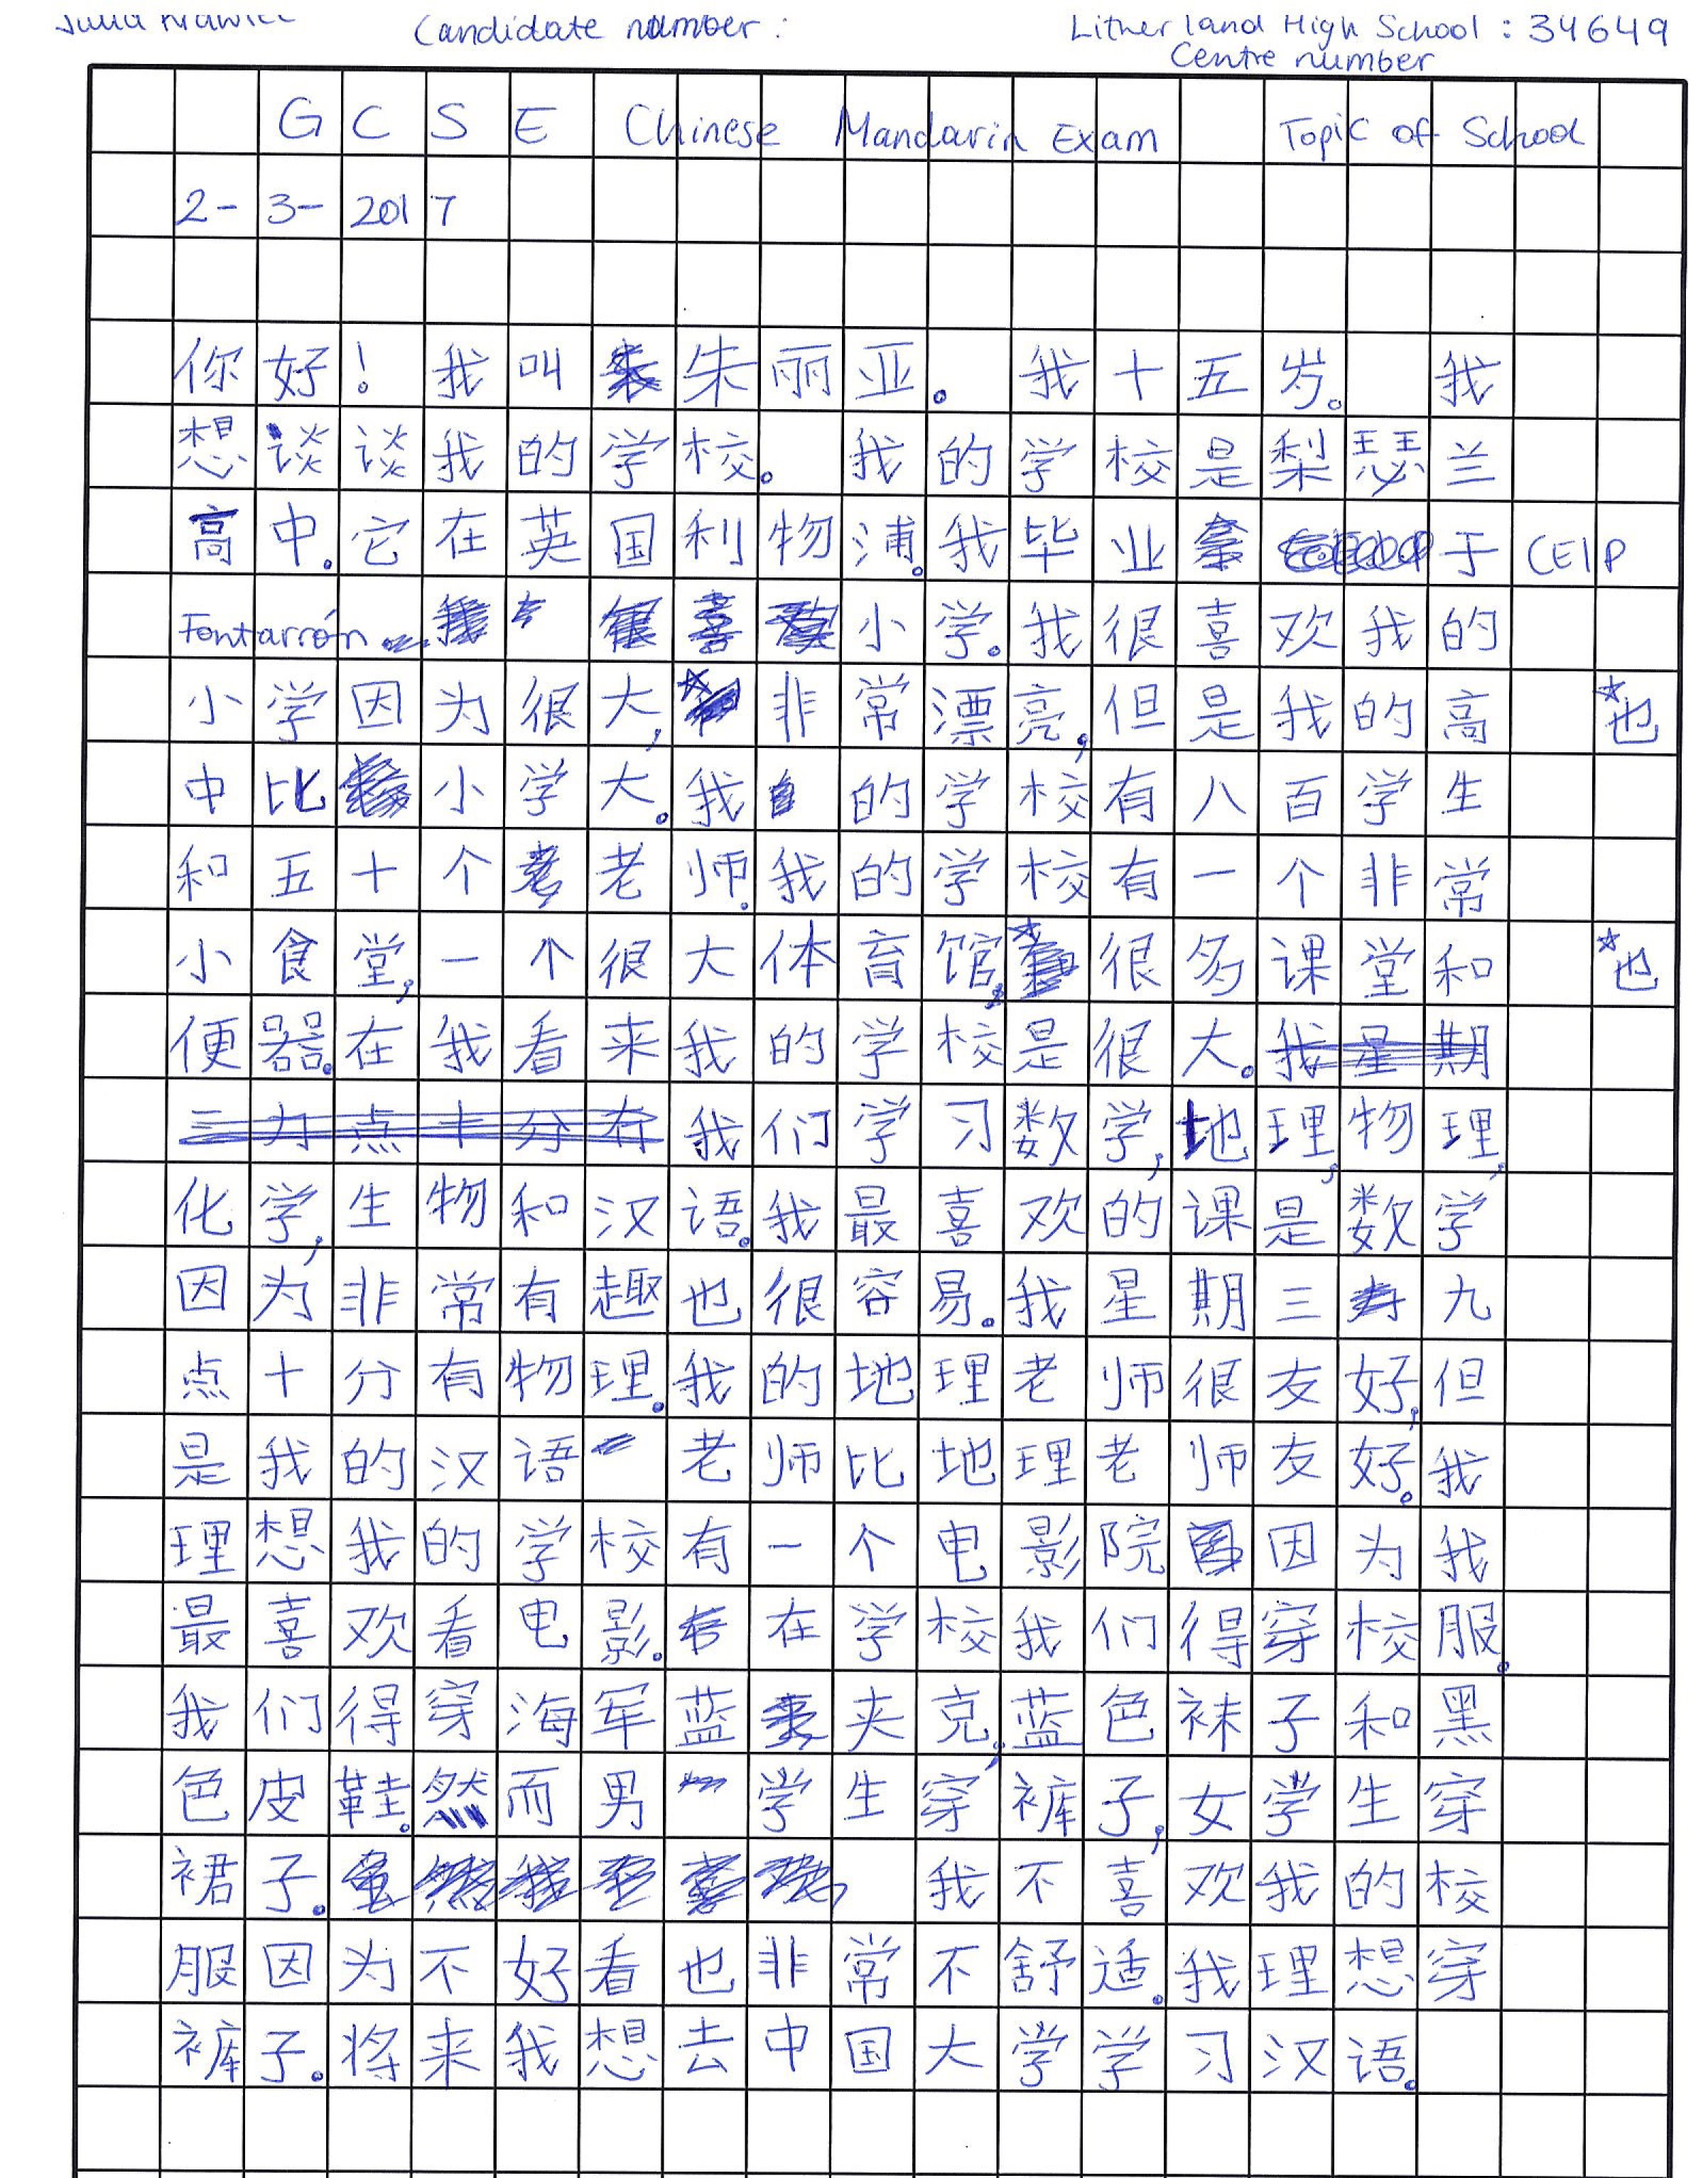 Candidate number :
Litherland High School : 34649
Centre number
GCSE Chinese Mandarin Exam Topic of School
2-3-2017
你好！我叫朱丽亚。我十五岁。我
想谈谈我的学校。我的学校是梨瑟兰
高中。它在英国利物浦。我毕业于CEIP
Fontarrón小学。我很喜欢我的
小学因为很大,*非常漂亮,但是我的高 *也
中比小学大。我的学校有八百学生
和五十个老师。我的学校有一个非常
小食堂,一个很大体育馆,*很多课堂和 *也
便器。在我看来我的学校是很大。我星期
三九点十分有我们学习数学,地理,物理,
化学,生物和汉语。我最喜欢的课是数学
因为非常有趣也很容易。我星期三九
点十分有物理。我的地理老师很友好,但
是我的汉语老师比地理老师友好。我
理想我的学校有一个电影院因为我
最喜欢看电影。在学校我们得穿校服。
我们得穿海军蓝夹克,蓝色袜子和黑
色皮鞋。然而男学生穿裤子,女学生穿
裙子。我不喜欢我的校
服因为不好看也非常不舒适。我理想穿
裤子。将来我想去中国大学学习汉语。